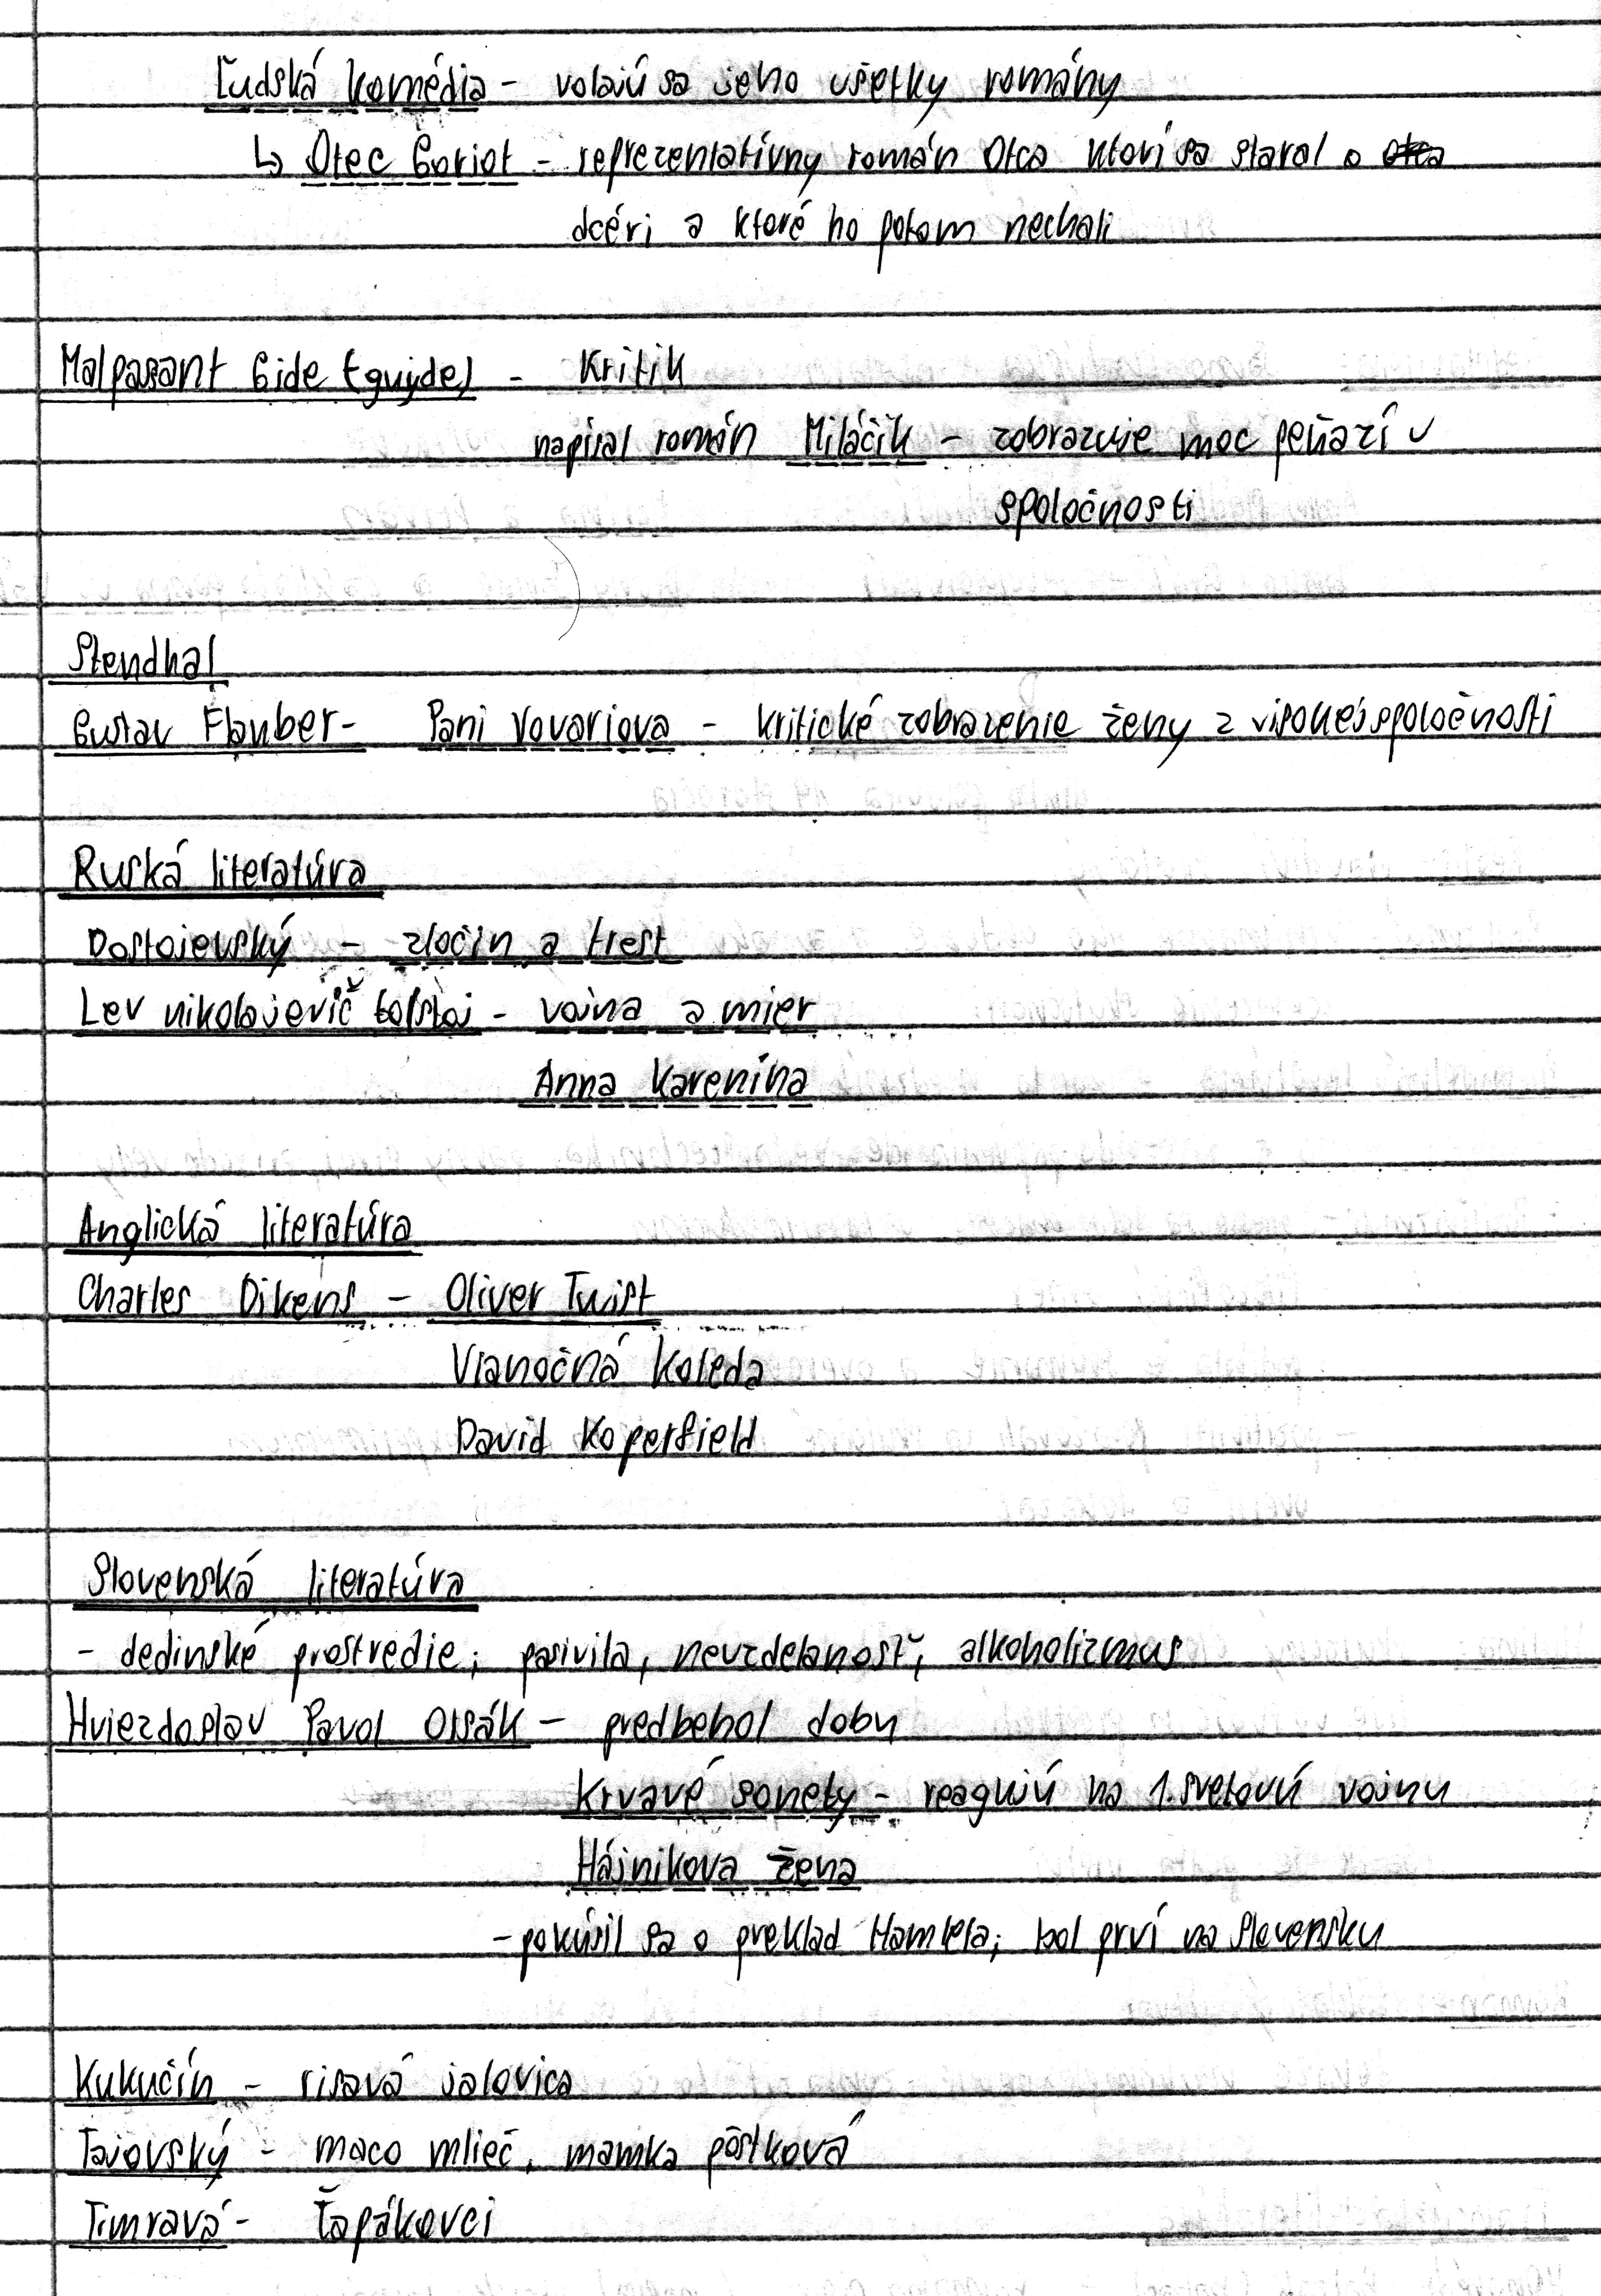 Ľudská komédia - volajú sa jeho všetky romány
↳ Otec Goriot - reprezentatívny román Otca ktorí sa staral o
dcéri a ktoré ho potom nechali
Malpasant Gide (guyde) - Kritik
napísal román Miláčik - zobrazuje moc peňazí v
spoločnosti
Stendhal
Gustav Flauber - Pani Vovariova - kritické zobrazenie ženy z visokej spoločnosti
Ruská literatúra
Dostojevský - zločin a trest
Lev nikolajevič tolstoj - vojna a mier
Anna Karenina
Anglická literatúra
Charles Dikens - Oliver Twist
Vianočná Koleda
David Koperfield
Slovenská literatúra
- dedinské prostredie; pasivita, nevzdelanosť, alkoholizmus
Hviezdoslav Pavol Orsák - predbehol dobu
Krvavé sonety - reagujú na 1. svetovú vojnu
Hájnikova žena
- pokúsil sa o preklad Hamleta; bol prví na Slovensku
Kukučín - risavá jalovica
Tajovský - maco mlieč, mamka pôstková
Timravá - Ťapákovci